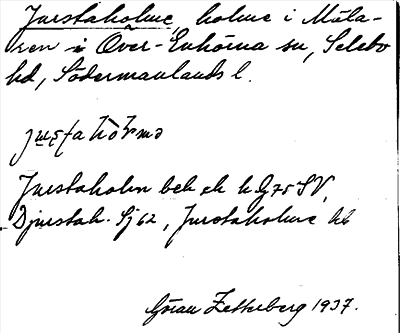 Jurstaholme, holme i Mäla-
ren i Över-Enhörna sn, Selebo
hd, Södermanlands l.
Jurstaholm bek ek
Djurstah. Sj 62, Jurstaholme
Göran Zetterberg 1937.